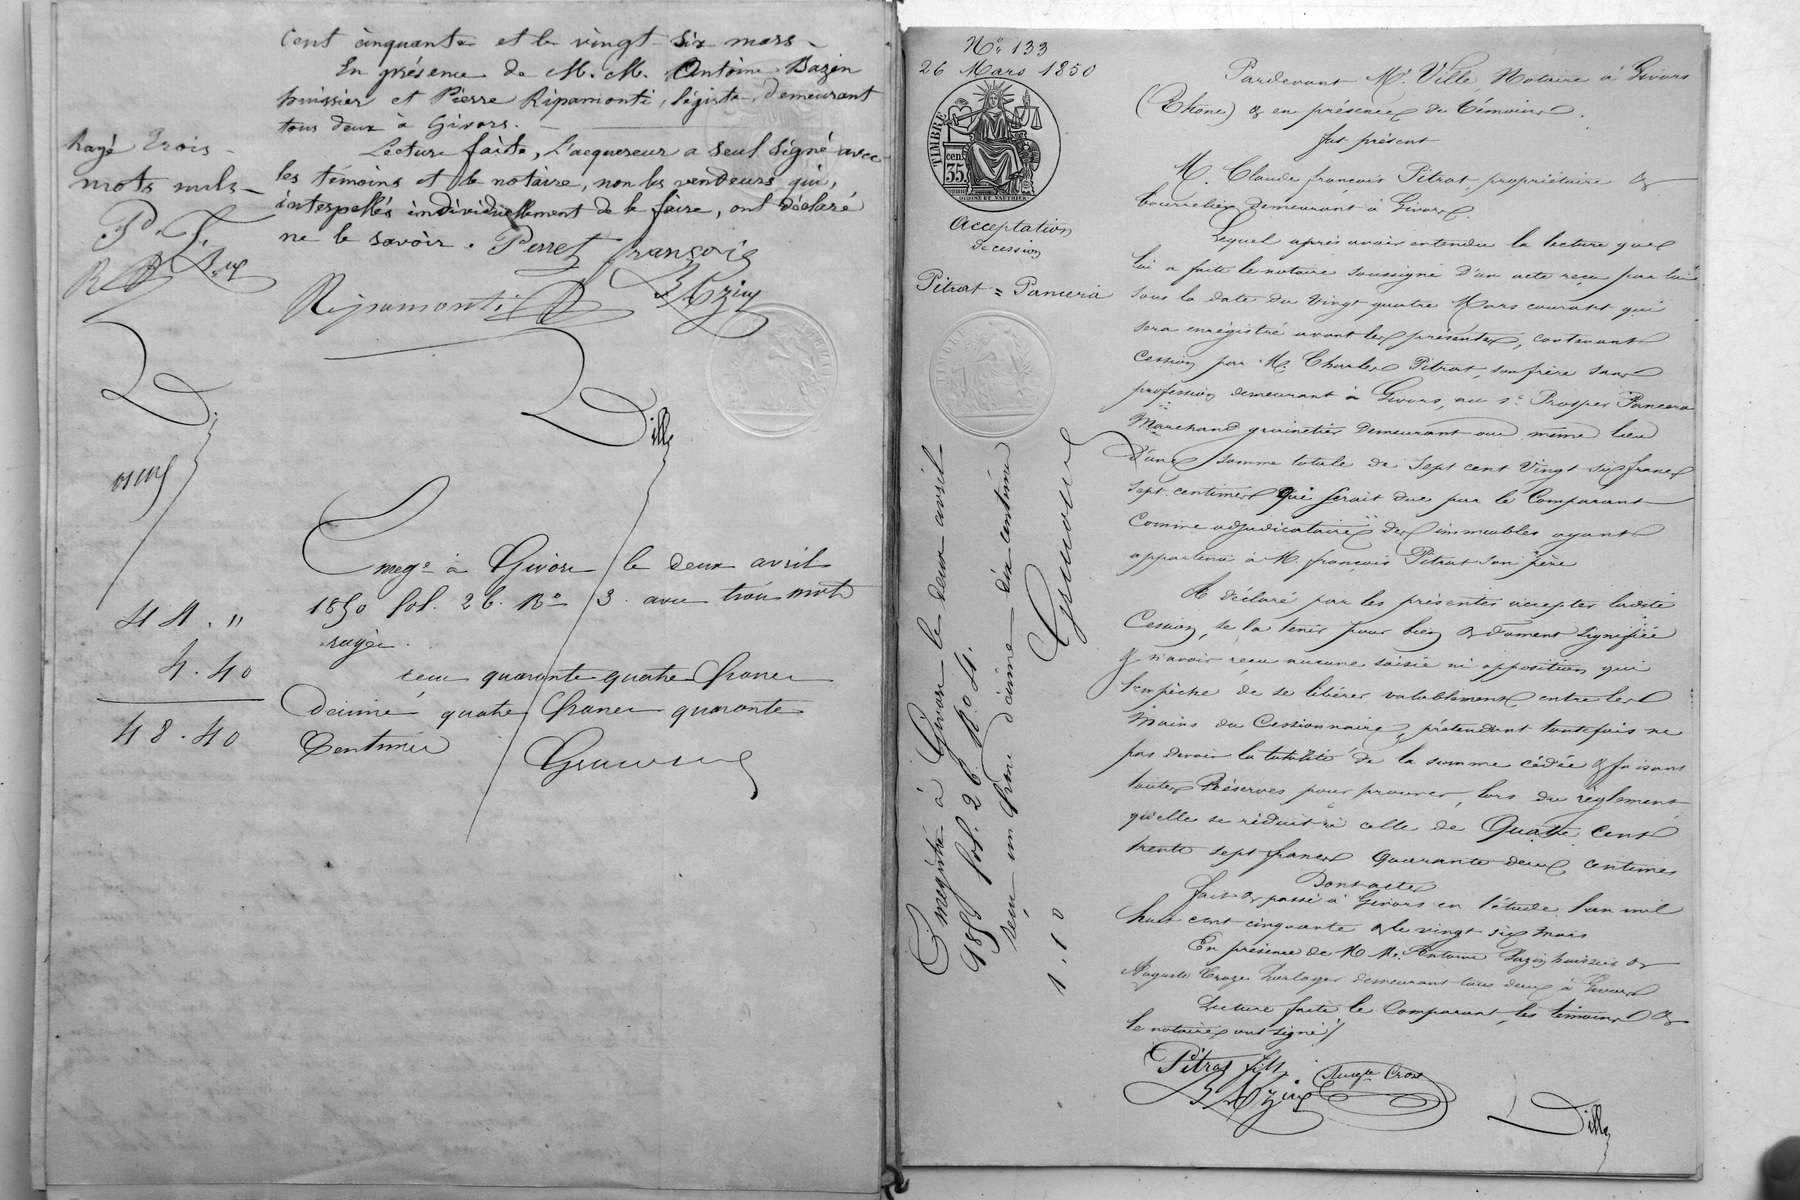 cent cinquante et le vingt-six mars
En présence de M. M. Antoine Bazin
huissier et Pierre Ripamonti, légiste, demeurant
tous deux à Givors.
Lecture faite, l'acquereur a seul signé avec
les témoins et le notaire, non les vendeurs qui,
interpellés individuellement de le faire, ont déclaré
ne le savoir. Perret françois
Rayé trois
mots nuls
P. f.
Ripamonti
Bazin
Ville
Enreg.e à Givors le deux avril
1850 fol. 26. Ro 3. avec trois mots
rayés.
reçu quarante quatre francs
décime quatre francs quarante
Centimes
44. "
4. 40
48. 40
No 133
26 Mars 1850
TIMBRE
35 cent.
Acceptation
de cession
Pitrat = Pancera
Enregistré à Givors le deux avril
1850 fol. 26. Ro. 4.
reçu un franc décime dix centimes
1. 10
Pardevant Me. Ville, Notaire à Givors
(Rhône) & en présence de témoins.
fut présent
M. Claude françois Pitrat propriétaire &
bourrelier demeurant à Givors.
Lequel après avoir entendu la lecture que
lui a faite le notaire soussigné d'un acte reçu par lui
sous la date du vingt quatre Mars courant qui
sera enregistré avant les présentes, contenant
cession par M. Charles Pitrat, son frère sans
profession demeurant à Givors, au sr. Prosper Pancera
Marchand grainetier demeurant au même lieu
D'une somme totale de sept cent vingt six francs
sept centimes qui serait due par le Comparant
comme adjudicataire des immeubles ayant
appartenu à M. françois Pitrat son père
A déclaré par les présentes accepter ladite
Cession, se la tenir pour bien & dument signifiée
& n'avoir reçu aucune saisie ni opposition qui
l'empêche de se libérer valablement entre les
mains du Cessionnaire, prétendant toutefois ne
pas devoir la totalité de la somme cédée & faisant
toutes Réserves pour prouver, lors du règlement
qu'elle se réduit à celle de Quatre cent
trente sept francs quarante deux centimes
Dont acte
fait & passé à Givors en l'étude l'an mil
huit cent cinquante & le vingt six mars
En présence de M M. Antoine Bazin huissier &
Auguste Croze horloger demeurant tous deux à Givors
Lecture faite le Comparant, les témoins &
le notaire ont signé
Pitrat fils
Auguste Croze
Bazin
Ville